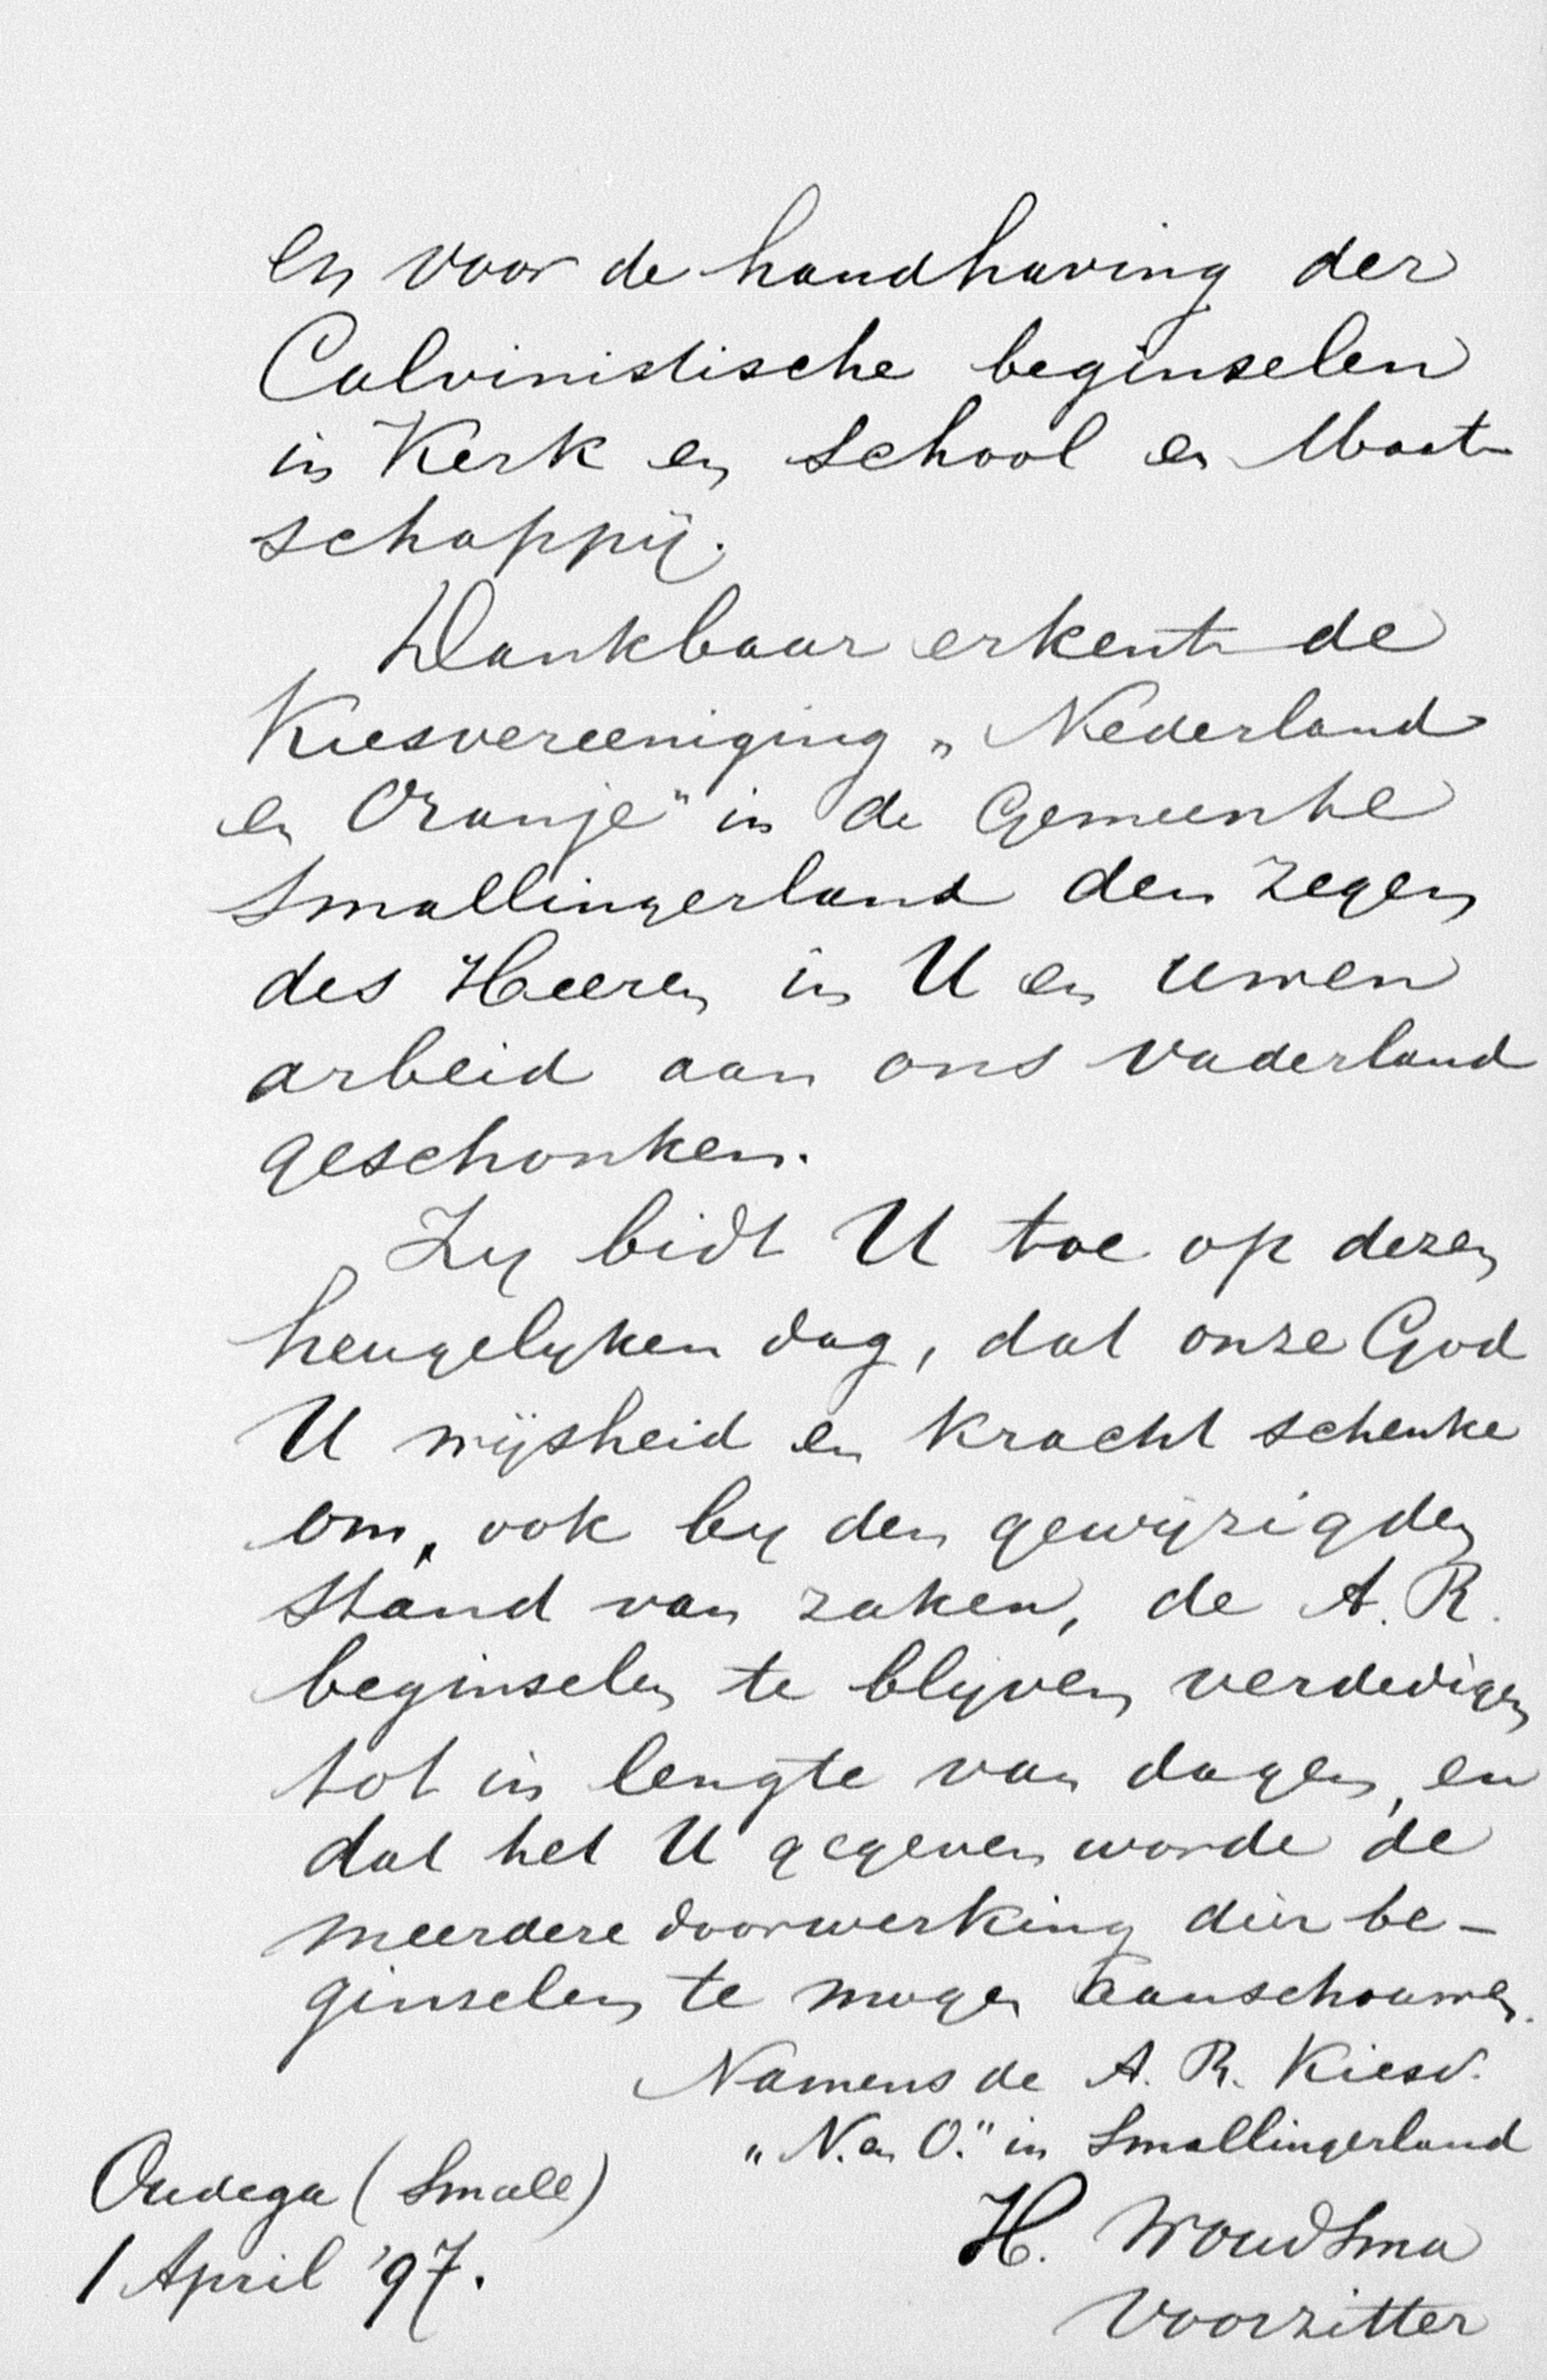 en voor de handhaving der
Calvinistische beginselen
in Kerk en School en Maat-
schappij.
Dankbaar erkent de
Kiesvereeniging „Nederland
en Oranje" in de Gemeente
Smallingerland den zegen
des Heeren in U en uwen
arbeid aan ons vaderland
geschonken.
Zy bidt U toe op dezen
heugelyken dag, dat onze God
U wijsheid en kracht schenke
om, ook by den gewijzigden
stand van zaken, de A. R.
beginselen te blijven verdedigen
tot in lengte van dagen, en
dat het U gegeven worde de
meerdere doorwerking dier be-
ginselen te mogen aanschouwen.
Namens de A. R. Kiesv.
„N. en O." in Smallingerland
Oudega (Small)
1 April '97.
H. Woudsma
Voorzitter